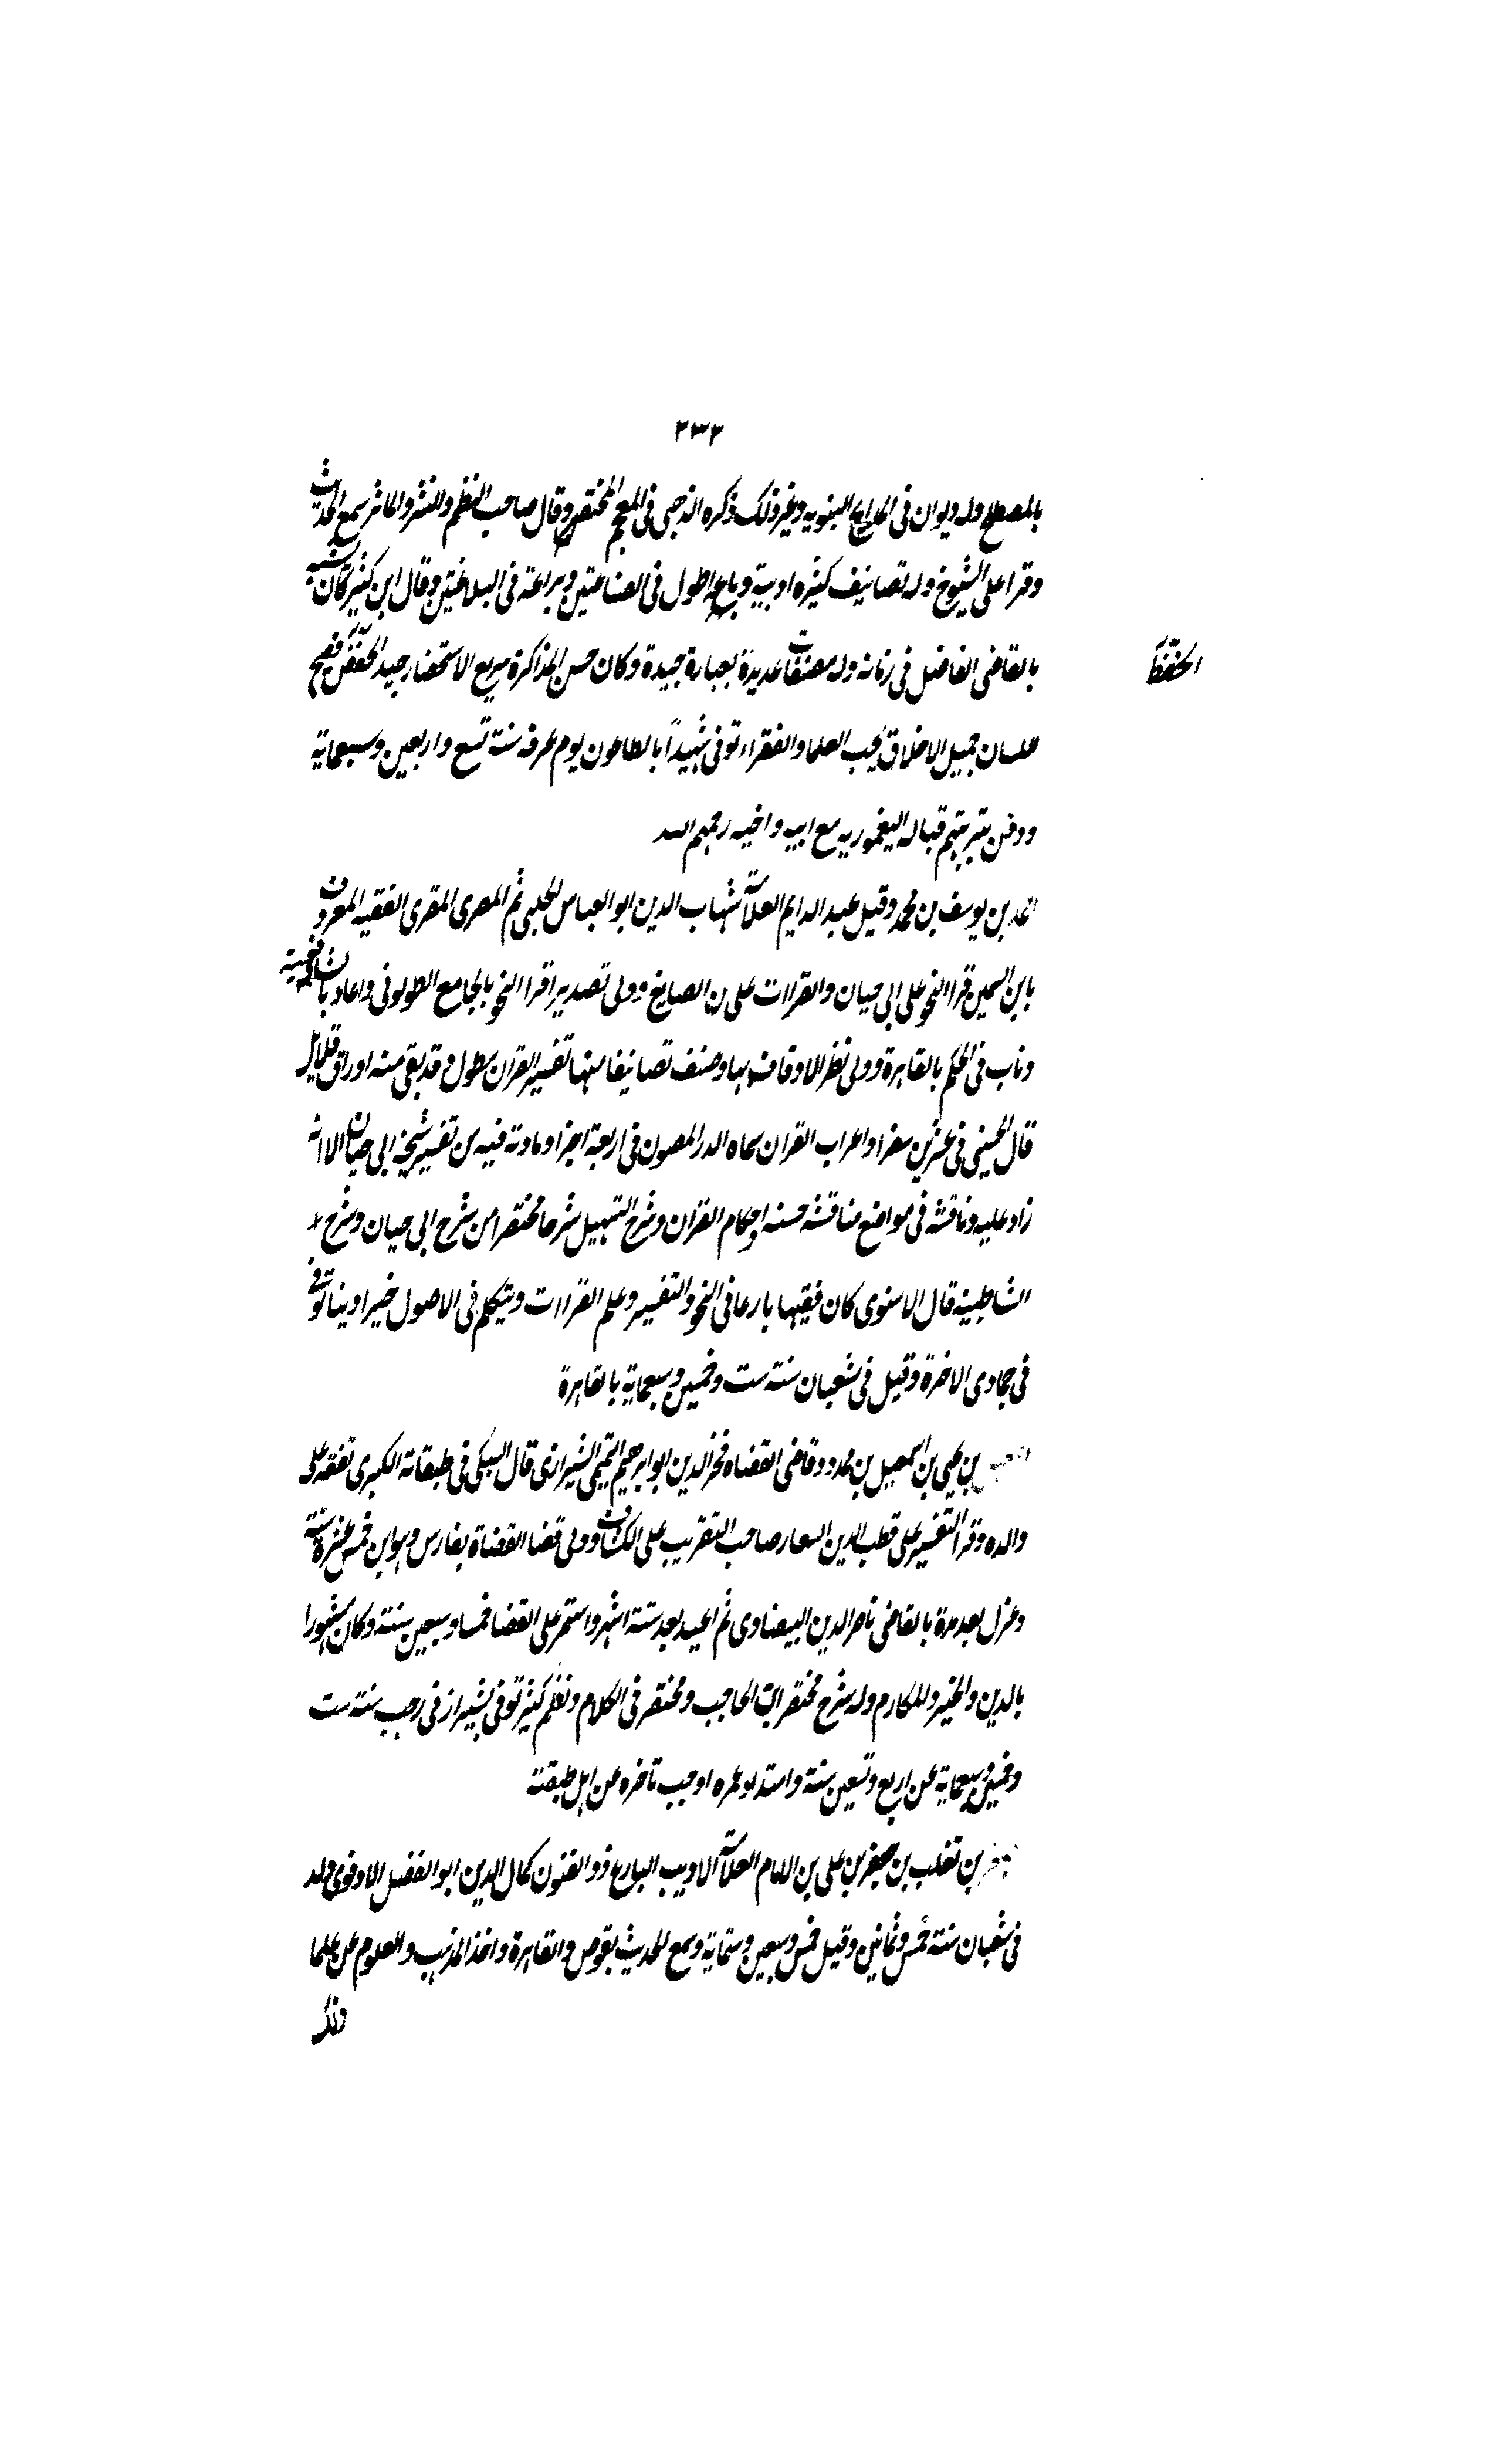 ٢٣٢
بالمصطلح وله ديوان فى المدايح النبويه وغير ذلك ذكره الذهبى فى المعجم المختصر وقال صاحب النظم والنثر والماثر سمع الحديث
وقرا على الشيوخ وله تصانيف كثيره ادبية وباعه اطول فى الصناعتين وبراعة فى البلاغتين وقال ابن كثير كان يشبه
بالقاضى الفاضل فى زمانه وله مصنفات عديدة بعبارة جيدة وكان حسن المذاكرة سريع الاستحضار جيد الحفظ فصيح
الحفظ
اللسان جميل الاخلاق يحب العلما والفقراء توفى شهيداً بالطاعون يوم عرفه سنة تسع واربعين وسبعماية
ودفن بتربتهم قبالة اليغموريه مع ابيه واخيه رحمهم الله
احمد بن يوسف بن محمد وقيل عبد الدايم العلامة شهاب الدين ابو العباس الحلبى ثم المصرى المقرى الفقيه المعروف
بابن السمين قرا النحو على ابى حيان والقراات على بن الصايغ وولى تصدير اقرا النحو بالجامع الطولونى واعاد بالشافعية
وناب فى الحكم بالقاهرة وولى نظر الاوقاف بها وصنف تصانيفا منها تفسير القران مطول وقد بقى منه اوراق قلايل
قال الحسينى فى عشرين سفرا واعراب القران سماه الدر المصون فى اربعة اجزا ومادته فيه من تفسير شيخه ابى حيان الا انه
زاد عليه وناقشه فى مواضع مناقشه حسنه واحكام القران وشرح التسهيل شرحا مختصرا من شرح ابى حيان وشرح
الشاطبية قال الاسنوى كان فقيها بارعا فى النحو والتفسير وعلم القراات ويتكلم فى الاصول خيرا دينا توفى
فى جمادى الاخرة وقيل فى شعبان سنة ست وخمسين وسبعماية بالقاهرة
بن يحيى بن اسمعيل بن محدود قاضى القضاه فخر الدين ابو ابرهيم التميمى الشيرازى قال السبكى فى طبقاته الكبرى تفقه على
والده وقرا التفسير على قطب الدين السعار صاحب التقريب على الكشاف وولى قضا القضاة بفارس وهو ابن خمس عشرة سنة
وعزل بعد مدة بالقاضى ناصر الدين البيضاوى ثم اعيد بعد ستة اشهر واستمر على القضا خمسا وسبعين سنة وكان مشهورا
بالدين والخير والمكارم وله شرح مختصر ابن الحاجب ومختصر فى الكلام ونظم كثير توفى بشيراز فى رجب سنة ست
وخمسين وسبعماية عن اربع وتسعين سنة وامتداد عمره اوجب تاخره عن اهل طبقته
جعفر بن تغلب بن جعفر بن على بن الامام العلامة الاديب البارع ذو الفنون كمال الدين ابو الفضل الادفوى ولد
فى شعبان سنة خمس وثمانين وقيل خمس وسبعين وستماية وسمع الحديث بقوص والقاهرة واخذ المذهب والعلوم عن علما
ذلك